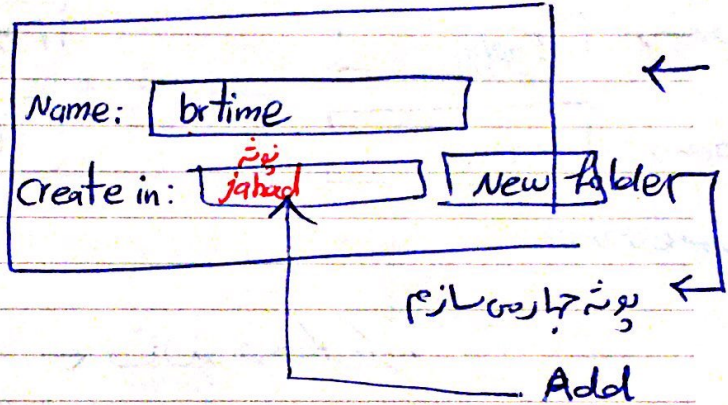 Name: brtime
پوشه
Create in: jahad New folder
پوشه جهاد می سازم
Add